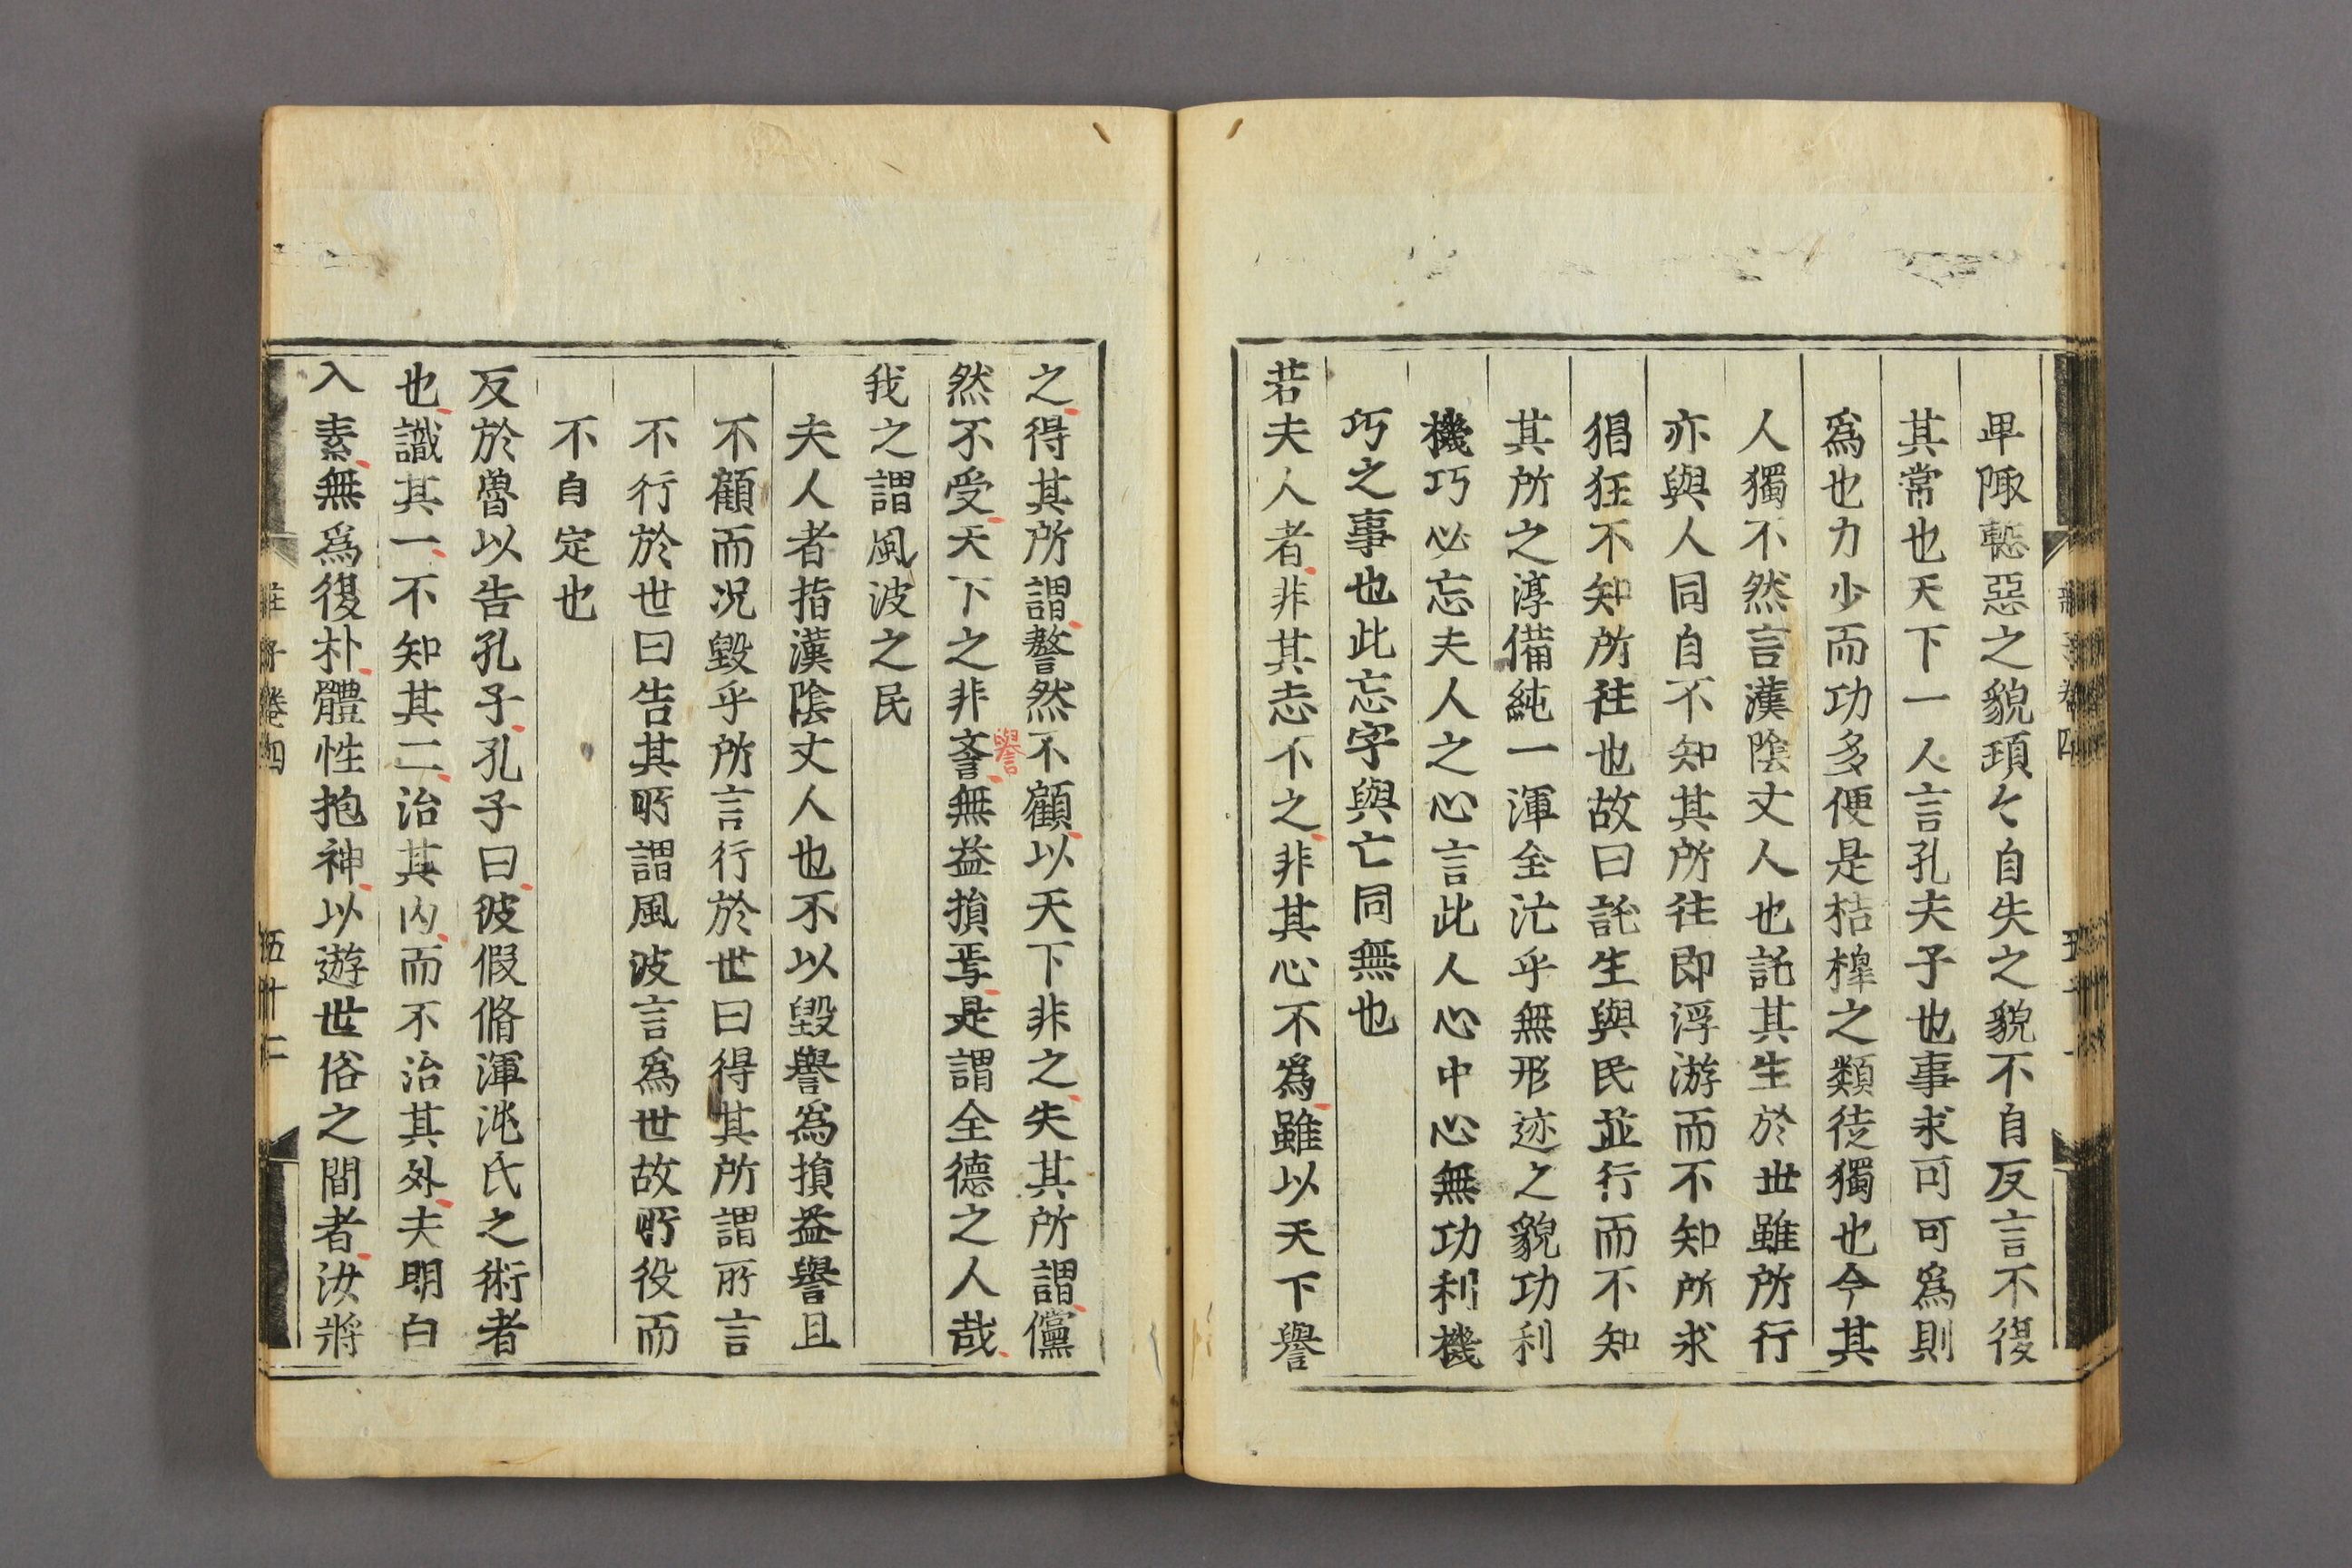 卑陬慙惡之貌頊々自失之貌不自反言不復
其常也天下一人言孔夫子也事求可可爲則
爲也力少而功多便是桔槹之類徒獨也今其
人獨不然言漢陰丈人也託其生於世雖所行
亦與人同自不知其所往即浮游而不知所求
猖狂不知所往也故曰託生與民並行而不知
其所之淳備純一渾全汒乎無形迹之貌功利
機巧必忘夫人之心言此人心中心無功利機
巧之事也此忘字與亡同無也
若夫人者非其志不之非其心不爲雖以天下譽
之得其所謂謷然不顧以天下非之失其所謂儻
然不受天下之非誉無益損焉是謂全德之人哉
譽
我之謂風波之民
夫人者指漢陰丈人也不以毀譽爲損益譽且
不顧而况毀乎所言行於世曰得其所謂所言
不行於世曰告其所謂風波言爲世故所役而
不自定也
反於魯以告孔子孔子曰彼假脩渾沌氏之術者
也識其一不知其二治其內而不治其外夫明白
入素無爲復朴體性抱神以遊世俗之間者汝將
莊子卷四 五十二